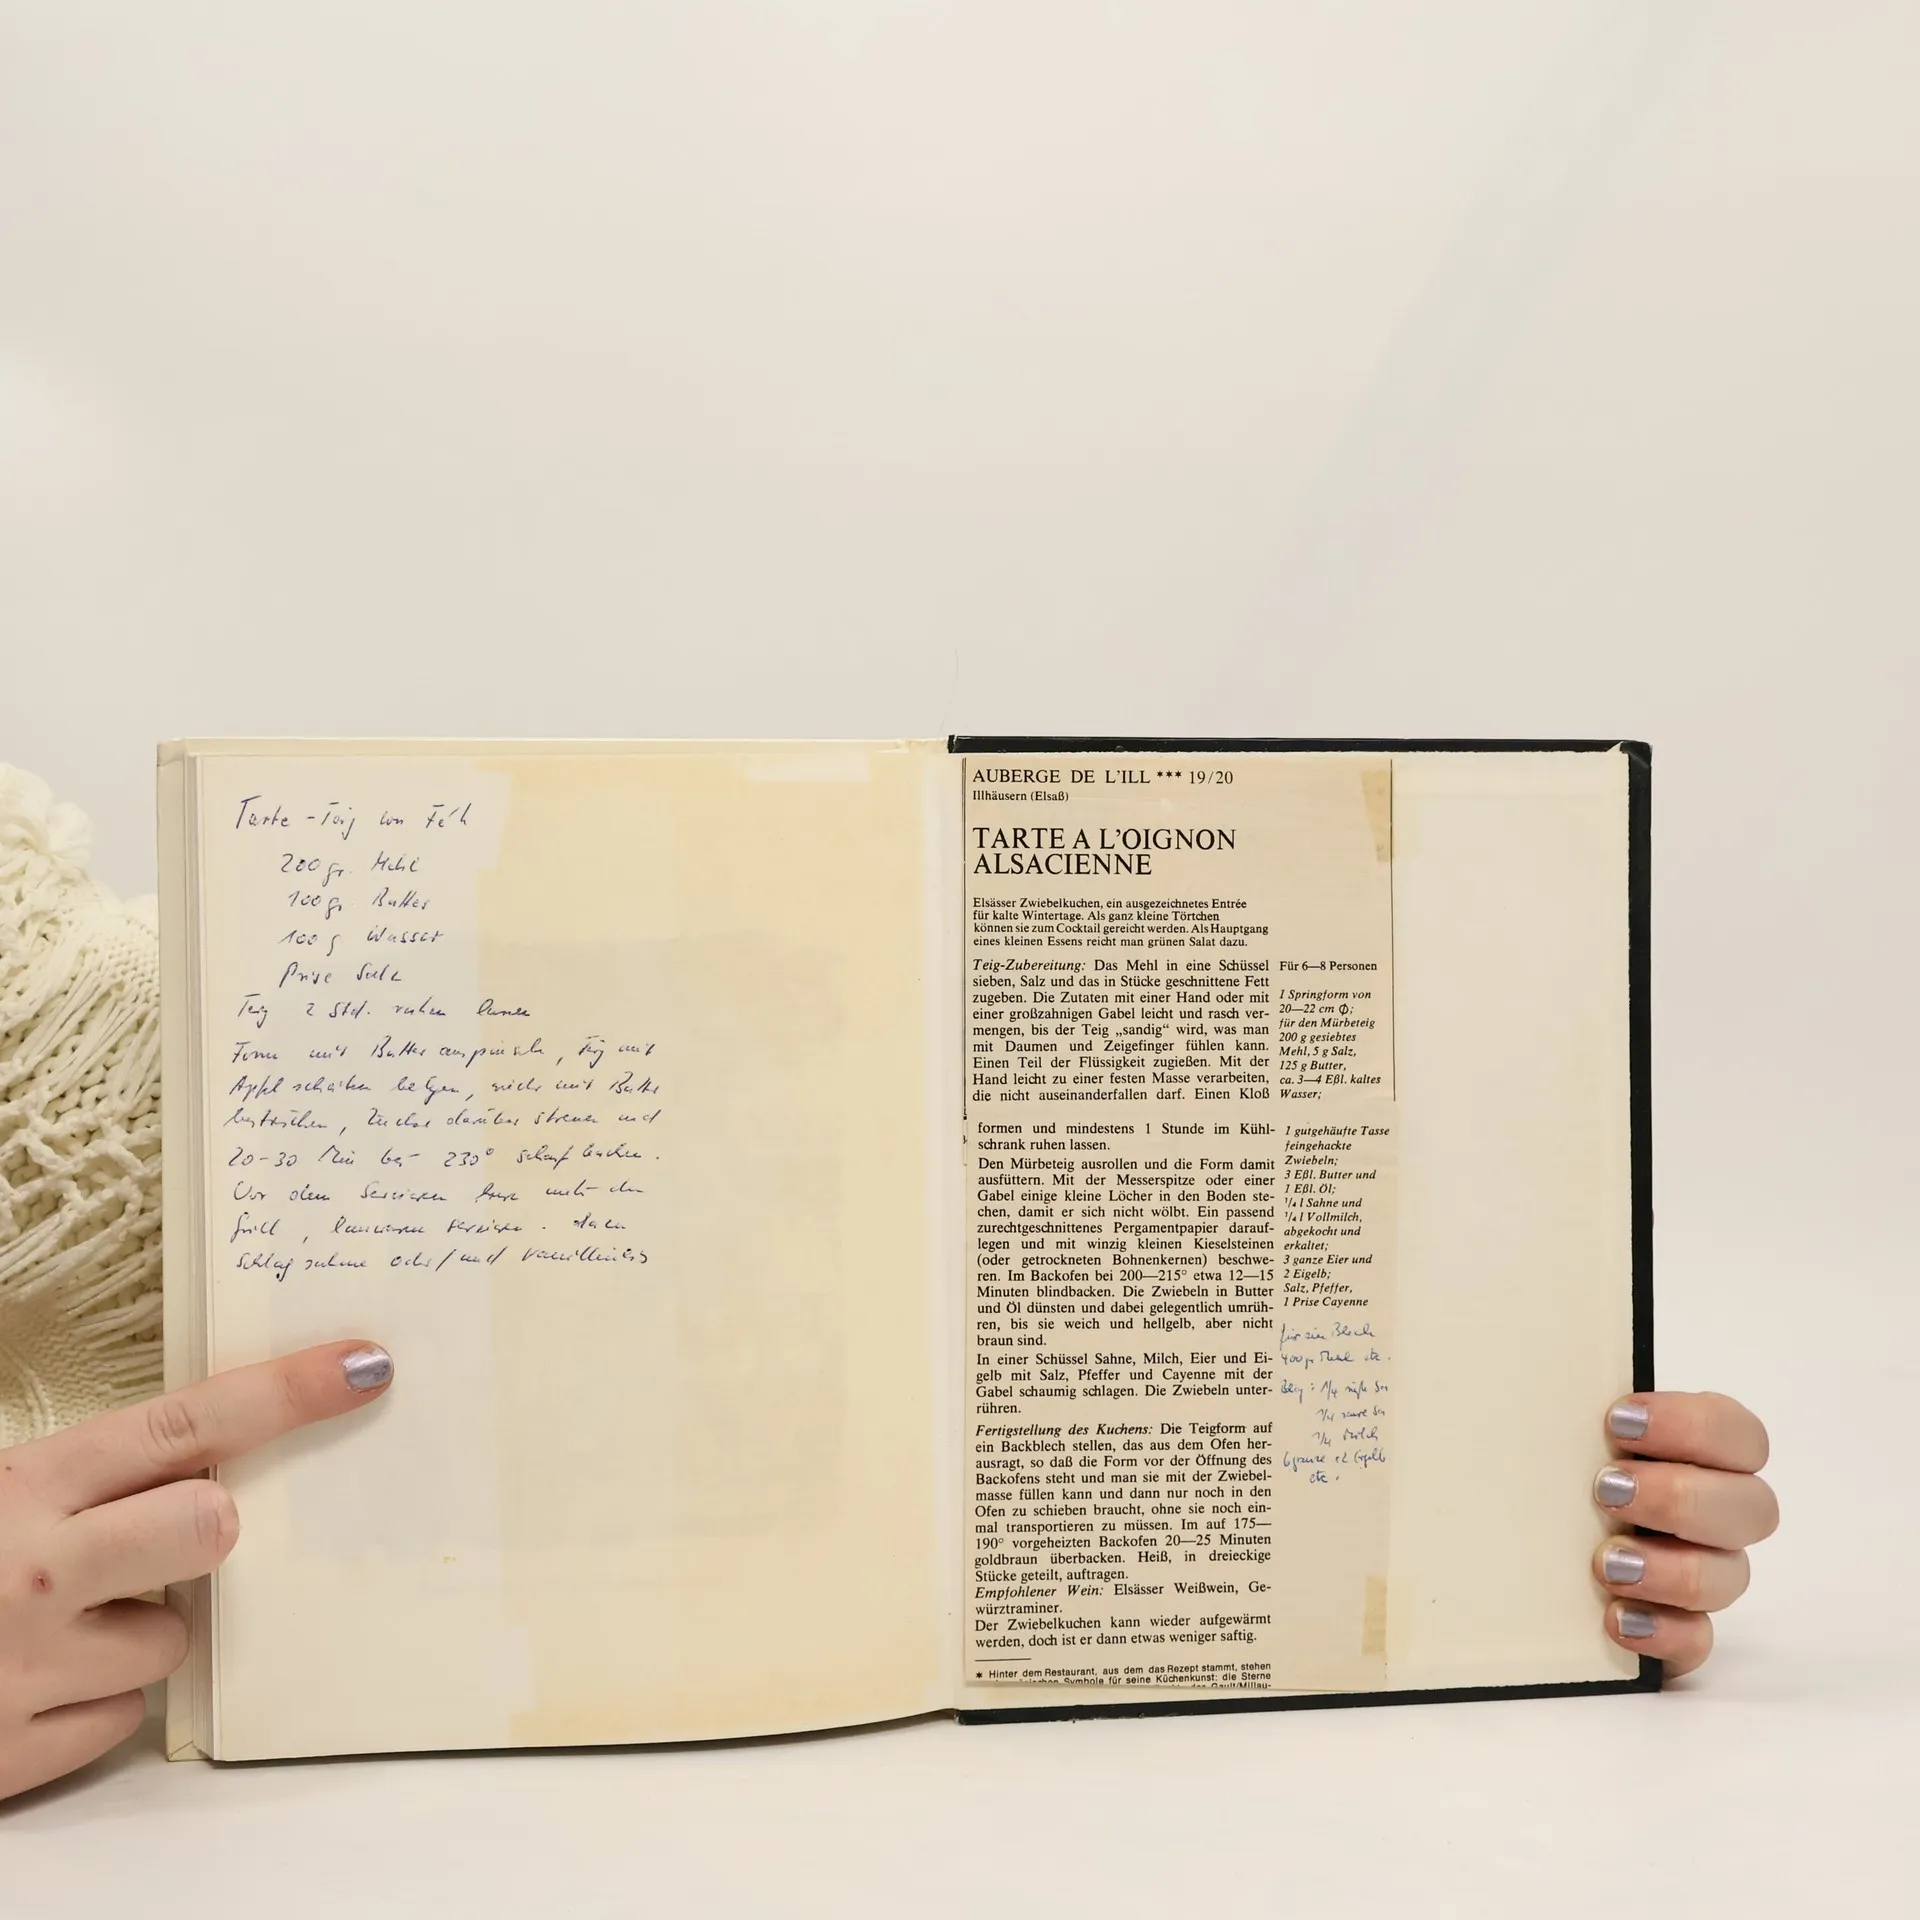 Tarte-Teig von
200 gr. Mehl
100 gr. Butter
100 g Wasser
Prise Salz
Teig 2 Std. ruhen lassen
Form mit Butter auspinseln, Teig mit
Apfelscheiben belegen, mit Butter
bestreichen, Zucker darüber streuen und
20-30 Min bei 230° scharf backen.
Vor dem Servieren kurz unter den
Grill, lauwarm servieren. dazu
Schlagsahne oder/und Vanilleeis
AUBERGE DE L'ILL *** 19/20
Illhäusern (Elsaß)
TARTE A L'OIGNON
ALSACIENNE
Elsässer Zwiebelkuchen, ein ausgezeichnetes Entrée
für kalte Wintertage. Als ganz kleine Törtchen
können sie zum Cocktail gereicht werden. Als Hauptgang
eines kleinen Essens reicht man grünen Salat dazu.
Teig-Zubereitung: Das Mehl in eine Schüssel
sieben, Salz und das in Stücke geschnittene Fett
zugeben. Die Zutaten mit einer Hand oder mit
einer großzahnigen Gabel leicht und rasch ver-
mengen, bis der Teig „sandig“ wird, was man
mit Daumen und Zeigefinger fühlen kann.
Einen Teil der Flüssigkeit zugießen. Mit der
Hand leicht zu einer festen Masse verarbeiten,
die nicht auseinanderfallen darf. Einen Kloß
formen und mindestens 1 Stunde im Kühl-
schrank ruhen lassen.
Den Mürbeteig ausrollen und die Form damit
ausfüttern. Mit der Messerspitze oder einer
Gabel einige kleine Löcher in den Boden ste-
chen, damit er sich nicht wölbt. Ein passend
zurechtgeschnittenes Pergamentpapier darauf-
legen und mit winzig kleinen Kieselsteinen
(oder getrockneten Bohnenkernen) beschwe-
ren. Im Backofen bei 200—215° etwa 12—15
Minuten blindbacken. Die Zwiebeln in Butter
und Öl dünsten und dabei gelegentlich umrüh-
ren, bis sie weich und hellgelb, aber nicht
braun sind.
In einer Schüssel Sahne, Milch, Eier und Ei-
gelb mit Salz, Pfeffer und Cayenne mit der
Gabel schaumig schlagen. Die Zwiebeln unter-
rühren.
Fertigstellung des Kuchens: Die Teigform auf
ein Backblech stellen, das aus dem Ofen her-
ausragt, so daß die Form vor der Öffnung des
Backofens steht und man sie mit der Zwiebel-
masse füllen kann und dann nur noch in den
Ofen zu schieben braucht, ohne sie noch ein-
mal transportieren zu müssen. Im auf 175—
190° vorgeheizten Backofen 20—25 Minuten
goldbraun überbacken. Heiß, in dreieckige
Stücke geteilt, auftragen.
Empfohlener Wein: Elsässer Weißwein, Ge-
würztraminer.
Der Zwiebelkuchen kann wieder aufgewärmt
werden, doch ist er dann etwas weniger saftig.
* Hinter dem Restaurant, aus dem das Rezept stammt, stehen
Symbole für seine Küchenkunst: die Sterne
Gault/Millau-
Für 6—8 Personen
1 Springform von
20—22 cm Φ;
für den Mürbeteig
200 g gesiebtes
Mehl, 5 g Salz,
125 g Butter,
ca. 3—4 Eßl. kaltes
Wasser;
1 gutgehäufte Tasse
feingehackte
Zwiebeln;
3 Eßl. Butter und
1 Eßl. Öl;
¼ l Sahne und
¼ l Vollmilch,
abgekocht und
erkaltet;
3 ganze Eier und
2 Eigelb;
Salz, Pfeffer,
1 Prise Cayenne
für ein Blech
400 gr Mehl etc.
1/4
1/4 saure
1/4 Milch
6 ganze +2 Eigelb
etc.